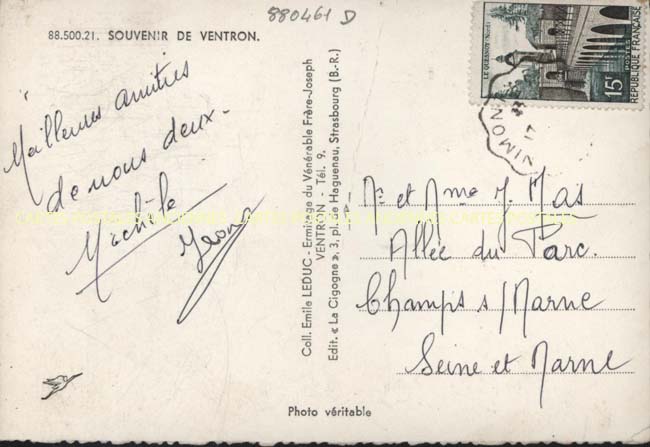 880461 D
88.500.21. SOUVENIR DE VENTRON.
Meilleures amitiés
de nous deux.
Michèle
Coll. Emile LEDUC - Ermitage du Vénérable Frère-Joseph
VENTRON - Tél. 9.
Edit. « La Cigogne », 3, pl. de Haguenau, Strasbourg (B.-R.)
LE QUESNOY (Nord)
15F
POSTES
REPUBLIQUE FRANÇAISE
17
Mr et Mme J. Mas
Allée du Parc.
Champs s/Marne
Seine et Marne
Photo véritable